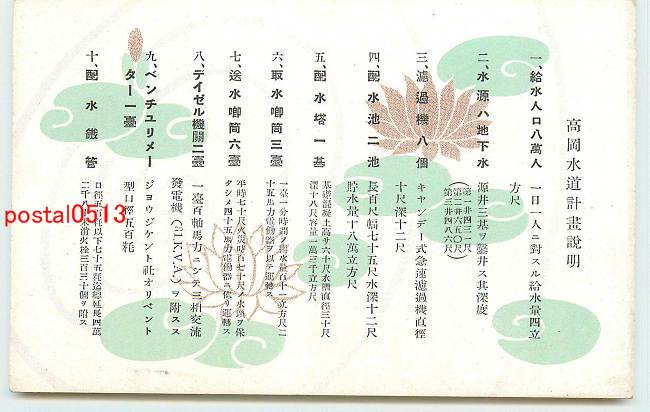 高岡水道計畫說明
一、給水人口八萬人 一日一人ニ對スル給水量四立
方尺
二、水源ハ地下水 源井三基ヲ鑿井ス其深度
(第一井四三一尺
第二井六五〇尺
第三井四八六尺)
三、濾過機八個 キャンデー式急速濾過機直徑
十尺深十二尺
四、配水池二池 長百尺幅七十五尺水深十二尺
貯水量十八萬立方尺
五、配水塔一基 基礎混凝土高サ六十尺水槽直徑三十尺
深十八尺容量一萬三千立方尺
六、取水喞筒三臺 一臺一分時間ノ揚水量百十一立方尺二
十五馬力電動器ヲ以テ運轉ス
七、送水喞筒六臺 平時七十尺火災時百七十尺ノ水頭ヲ保
タシメ四十五馬力電動器ニ依リ運轉ス
八、デイゼル機關二臺 一臺百軸馬力ニシテ三相交流
發電機 K.V.A.)ヲ附スス
九、ベンチユリメー ジヨウジケント社オリベント
ター一臺 型口徑五百粍
十、配水鐵管 口徑五百 以下七十五粍迄總延長四萬
二千八 消火栓三百三十個ヲ附ス
postal0513